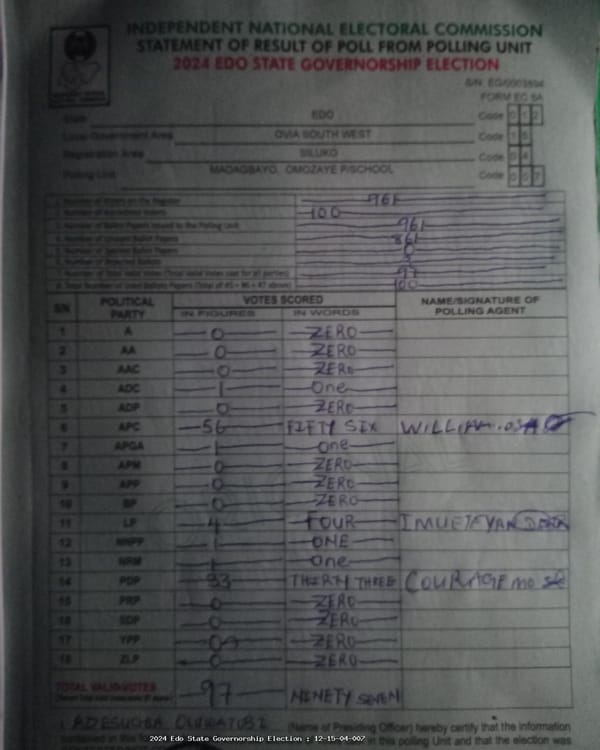 INDEPENDENT NATIONAL ELECTORAL COMMISSION
STATEMENT OF RESULT OF POLL FROM POLLING UNIT
2024 EDO STATE GOVERNORSHIP ELECTION
FORM EC 8A
State EDO Code 012
Local Government Area OVIA SOUTH WEST Code
Registration Area SILUKO Code 04
Polling Unit MADAGBAYO, OMOZAYE P/SCHOOL Code 007
1. Number of Voters on the Register 961
2. Number of Accredited Voters 100
3. Number of Ballot Papers Issued to the Polling Unit 961
4. Number of Unused Ballot Papers 861
5. Number of Spoiled Ballot Papers 0
6. Number of Rejected Ballots 3
7. Number of Total Valid Votes (Total Valid Votes cast for all parties) 97
8. Total Number of Used Ballot Papers (Total of #5 + #6 + #7 above) 100
S/N POLITICAL PARTY VOTES SCORED NAME/SIGNATURE OF POLLING AGENT
IN FIGURES IN WORDS
1 A 0 ZERO
2 AA 0 ZERO
3 AAC 0 ZERO
4 ADC 1 One
5 ADP 0 ZERO
6 APC 56 FIFTY SIX WILLIAM
7 APGA 1 one
8 APM 0 ZERO
9 APP 0 ZERO
10 BP 0 ZERO
11 LP 4 FOUR
12 NNPP 1 ONE
13 NRM 1 One
14 PDP 33 THIRTY THREE COURAGE
15 PRP 0 ZERO
16 SDP 0 ZERO
17 YPP 0 ZERO
18 ZLP 0 ZERO
TOTAL VALID VOTES 97 NINETY SEVEN
I, (Name of Presiding Officer) hereby certify that the information
in this Polling Unit and that the election was
2024 Edo State Governorship Election : 12-15-04-007